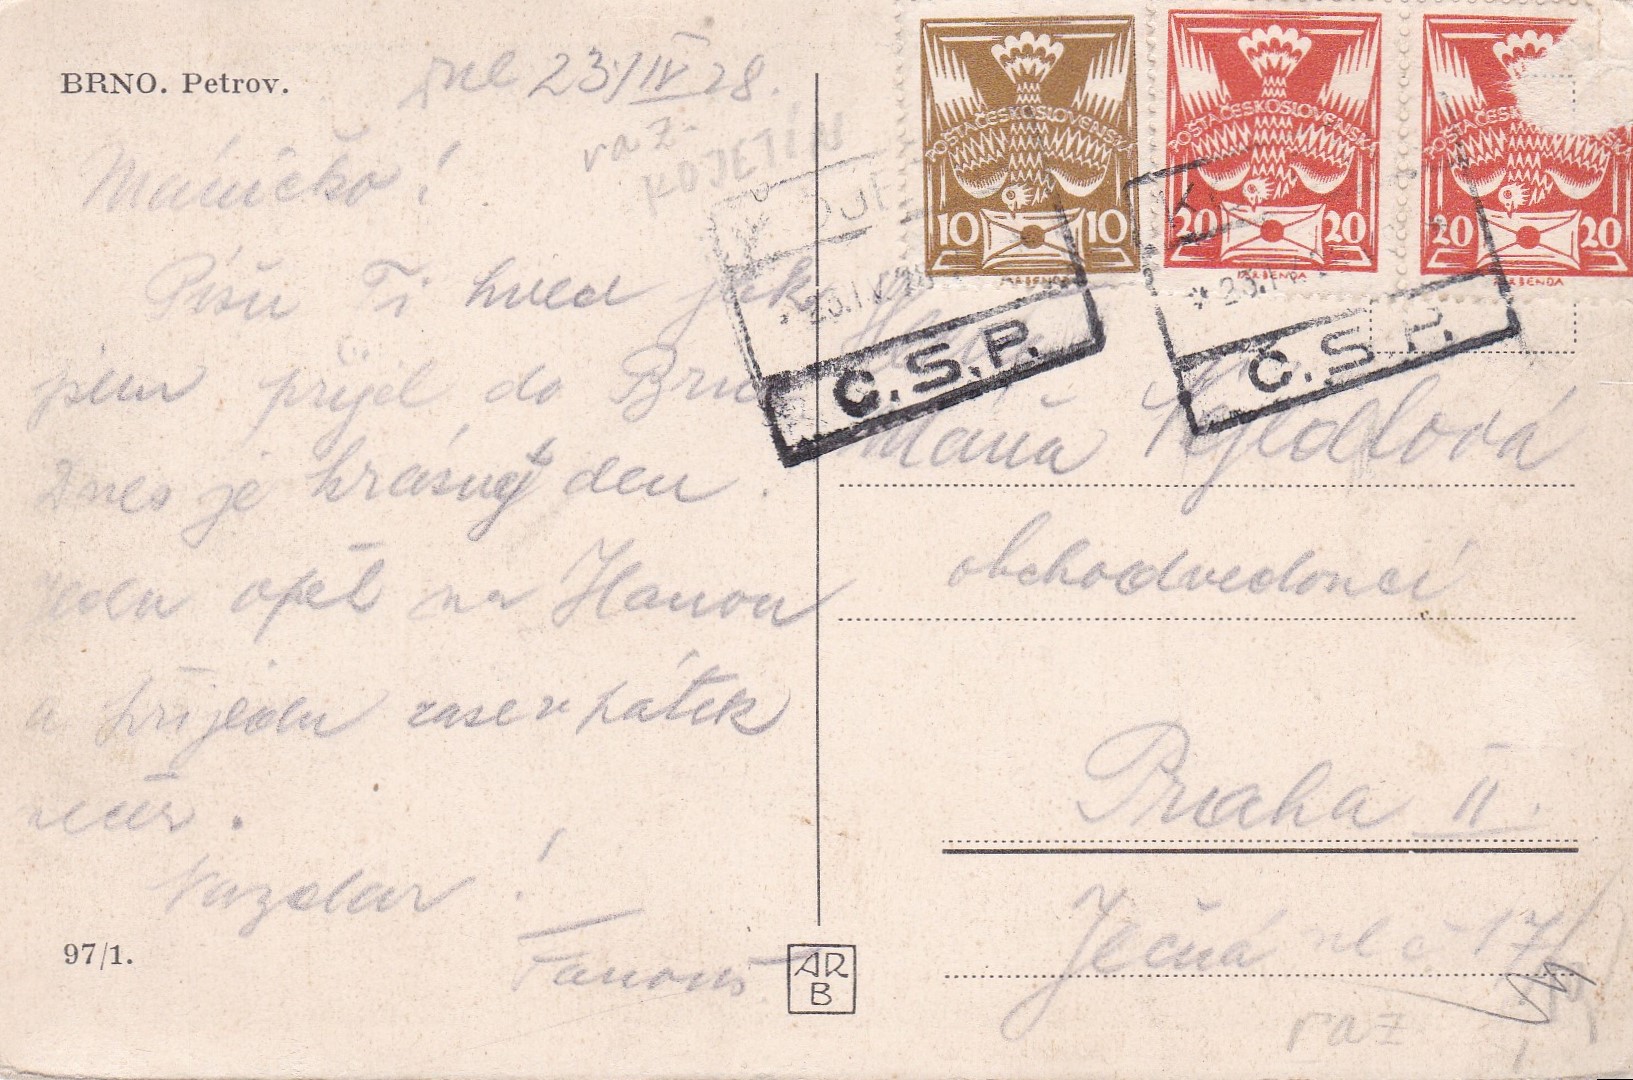 BRNO. Petrov.
dne 23/IV 28.
raz.
KOJETÍN
Máničko!
Píšu Ti hned jak
jsem přijel do Brna
Dnes je krásný den.
Jedu opět na Hanou
a přijedu zase v pátek
večer.
Nazdar!
Fanouš
97/1.
AR
B
POŠTA ČESKOSLOVENSKÁ
10 10
POŠTA ČESKOSLOVENSKÁ
20 20
POŠTA ČESKOSLOVENSKÁ
20 20
23.IV.28
C.S.P.
* 23.IV
C.S.P.
Máňa
obchodvedoucí
Praha II.
Ječná ul č 17
raz